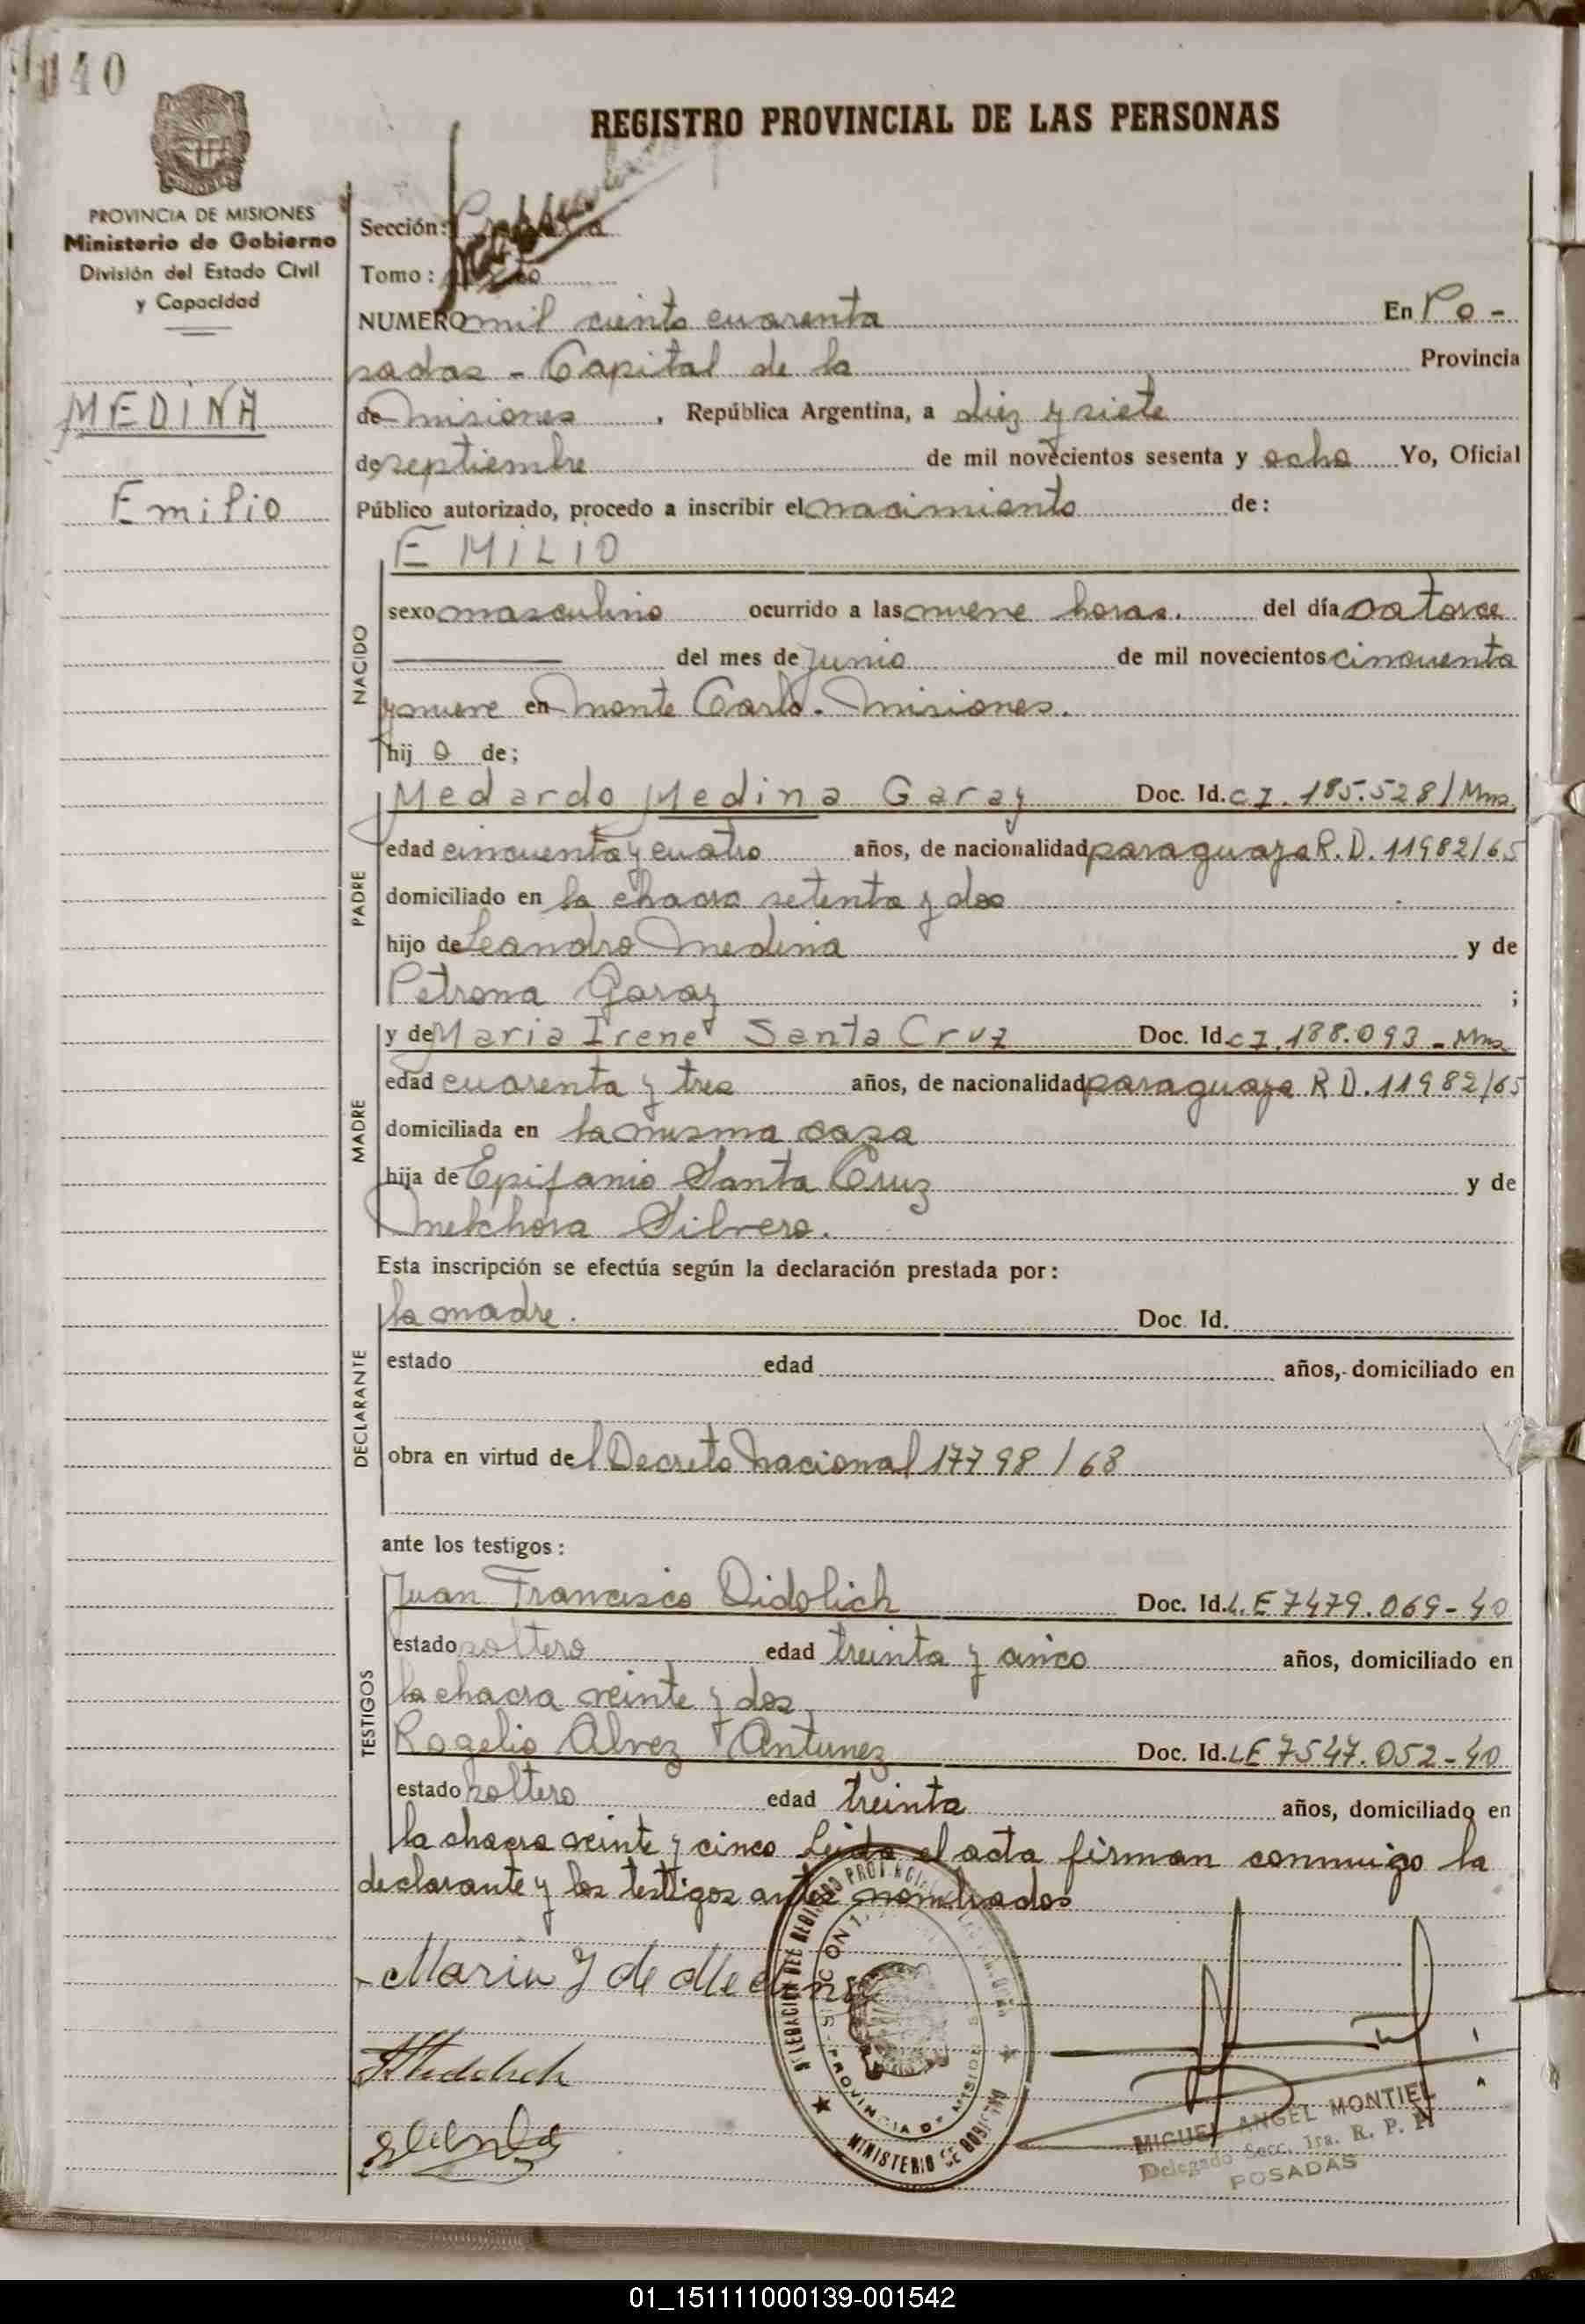 1140
REGISTRO PROVINCIAL DE LAS PERSONAS
PROVINCIA DE MISIONES
Ministerio de Gobierno
División del Estado Civil
y Capacidad
MEDINA
Emilio
Sección:
Tomo:
NUMERO mil ciento cuarenta En Po-
sadas - Capital de la Provincia
de Misiones, República Argentina, a diez y siete
de septiembre de mil novecientos sesenta y ocho Yo, Oficial
Público autorizado, procedo a inscribir el nacimiento de:
EMILIO
NACIDO
sexo masculino ocurrido a las nueve horas. del día catorce
del mes de Junio de mil novecientos cincuenta
y nueve en Monte Carlo. Misiones.
hij o de;
PADRE
Medardo Medina Garay Doc. Id. C I. 185.528/Mns.
edad cincuenta y cuatro años, de nacionalidad paraguaya R.D. 11982/65
domiciliado en la chacra setenta y dos
hijo de Leandro Medina y de
Petrona Garay ;
MADRE
y de Maria Irene Santa Cruz Doc. Id. C I. 188.093 - Mns
edad cuarenta y tres años, de nacionalidad paraguaya R D. 11982/65
domiciliada en la misma casa
hija de Epifanio Santa Cruz y de
Melchora Silvero.
Esta inscripción se efectúa según la declaración prestada por:
DECLARANTE
la madre. Doc. Id.
estado edad años, domiciliado en
obra en virtud de l Decreto Nacional 17798/68
ante los testigos:
TESTIGOS
Juan Francisco Didolich Doc. Id. L.E 7479.069-40
estado soltero edad treinta y cinco años, domiciliado en
la chacra veinte y dos
Rogelio Alvez Antunez Doc. Id. LE 7547.052-40
estado soltero edad treinta años, domiciliado en
la chacra veinte y cinco Leida el acta firman conmigo la
declarante y los testigos antes nombrados
Maria I de Medina
DELEGACION DEL REGISTRO PROVINCIAL
PROVINCIA DE MISIONES
MINISTERIO DE GOBIERNO
MIGUEL ANGEL MONTIEL
Delegado Secc. 1ra. R. P. P.
POSADAS
01_151111000139-001542